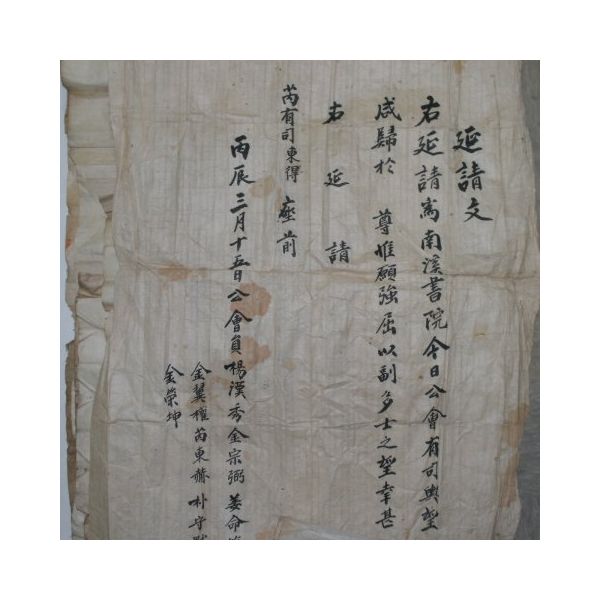 延請文
右延請事南溪書院今日公會有司輿望
咸歸於 尊惟願強屈以副多士之望幸甚
右延請
芮有司東得 座前
丙辰三月十五日公會員楊漢秀金宗弼姜命
金翼權芮東赫朴守
金榮坤